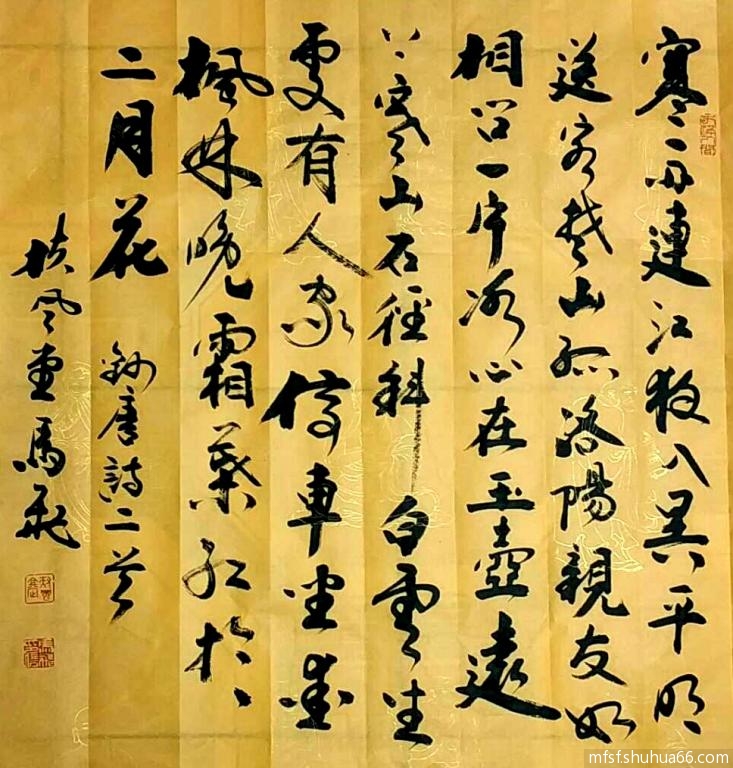 寒雨連江夜入吴平明
送客楚山孤洛陽親友如
相问一片冰心在玉壺遠
上寒山石徑斜白雲生
處有人家停車坐愛
楓林晚霜葉红於
二月花 錄唐詩二首
扶风堂馬飛
mfsf.shuhua66.com